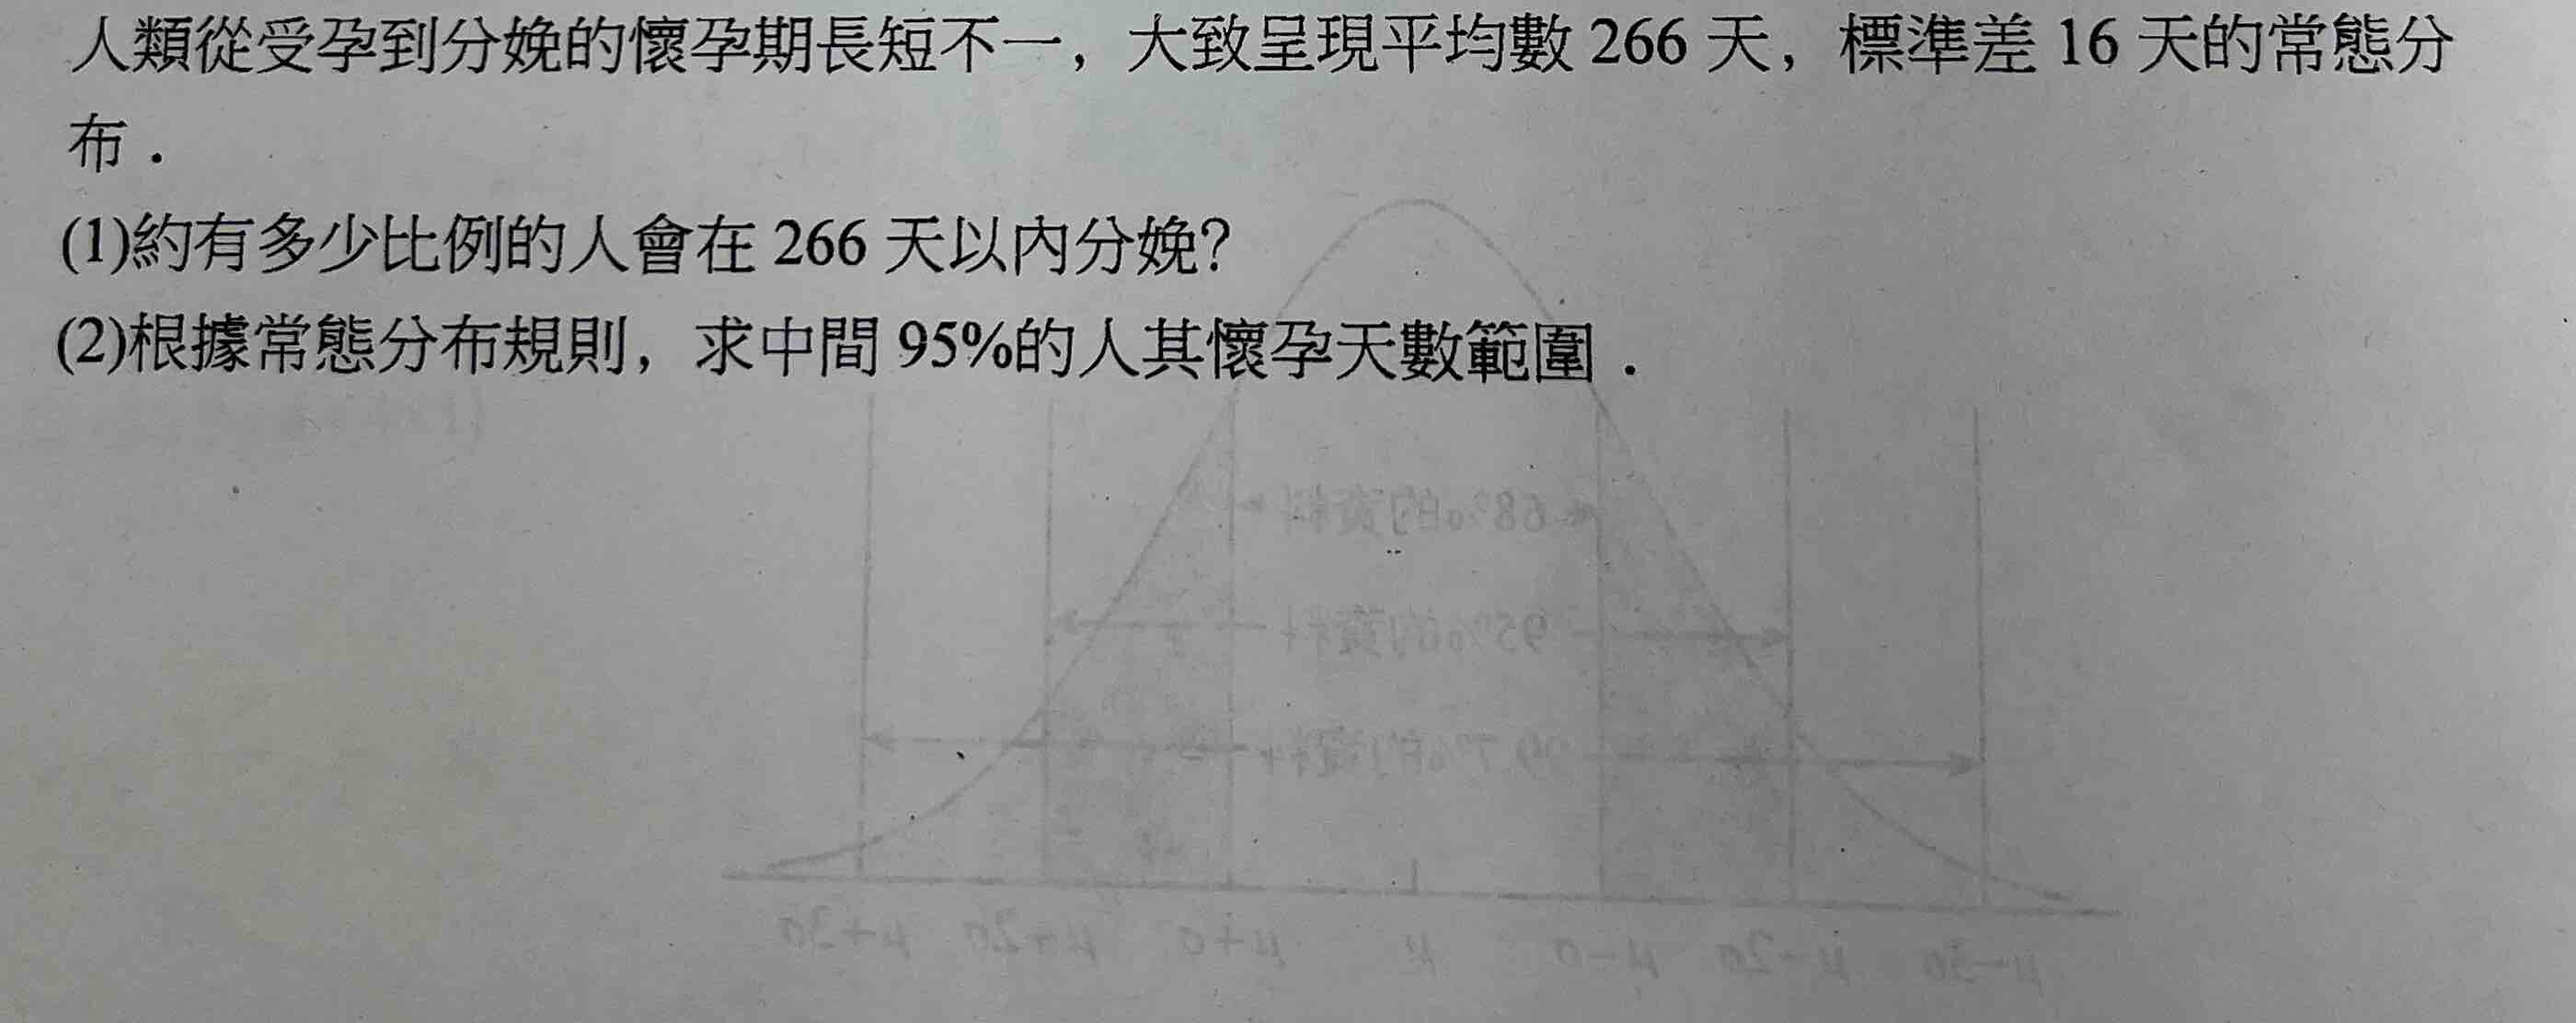 人類從受孕到分娩的懷孕期長短不一，大致呈現平均數 266 天，標準差 16 天的常態分
布．
(1)約有多少比例的人會在 266 天以內分娩?
(2)根據常態分布規則，求中間 95%的人其懷孕天數範圍．
68%的資料
95%的資料
99.7%的資料
μ+3σ μ+2σ μ+σ μ μ−σ μ−2σ μ−3σ